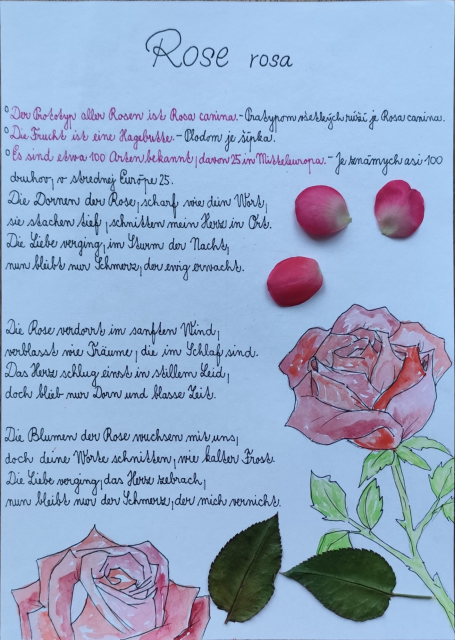 Rose rosa
° Der Prototyp aller Rosen ist Rosa canina. - Pratypom všetkých ruží je Rosa canina.
° Die Frucht ist eine Hagebutte. - Plodom je šípka.
° Es sind etwa 100 Arten bekannt, davon 25 in Mitteleuropa. - Je známych asi 100
druhov, v strednej Európe 25.
Die Dornen der Rose, scharf wie dein Wort,
sie stachen tief, schnitten mein Herz in Ort.
Die Liebe verging, im Sturm der Nacht,
nun bleibt nur Schmerz, der ewig erwacht.
Die Rose verdorrt im sanften Wind,
verblasst wie Träume, die im Schlaf sind.
Das Herz schlug einst in stillem Leid,
doch blieb nur Dorn und blasse Zeit.
Die Blumen der Rose wuchsen mit uns,
doch deine Worte schnitten, wie kalter Frost.
Die Liebe verging, das Herz zebrach,
nun bleibt nur der Schmerz, der mich vernicht.